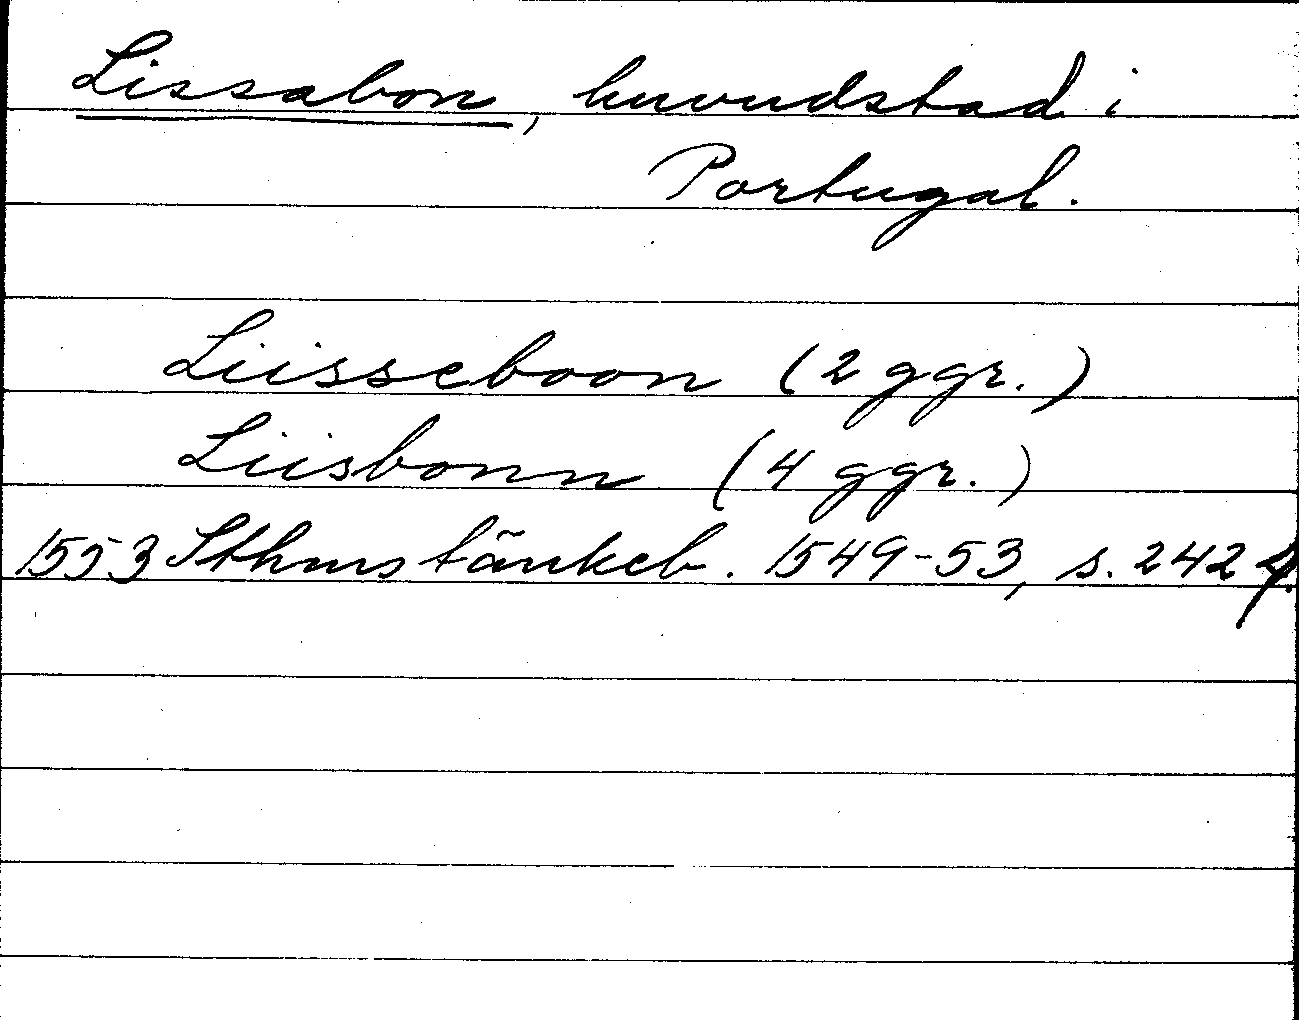 Lissabon, huvudstad i
Portugal.
Liisseboon (2 ggr.)
Liisbonn (4 ggr.)
1553 Sthms tänkeb. 1549-53, s. 242 f.